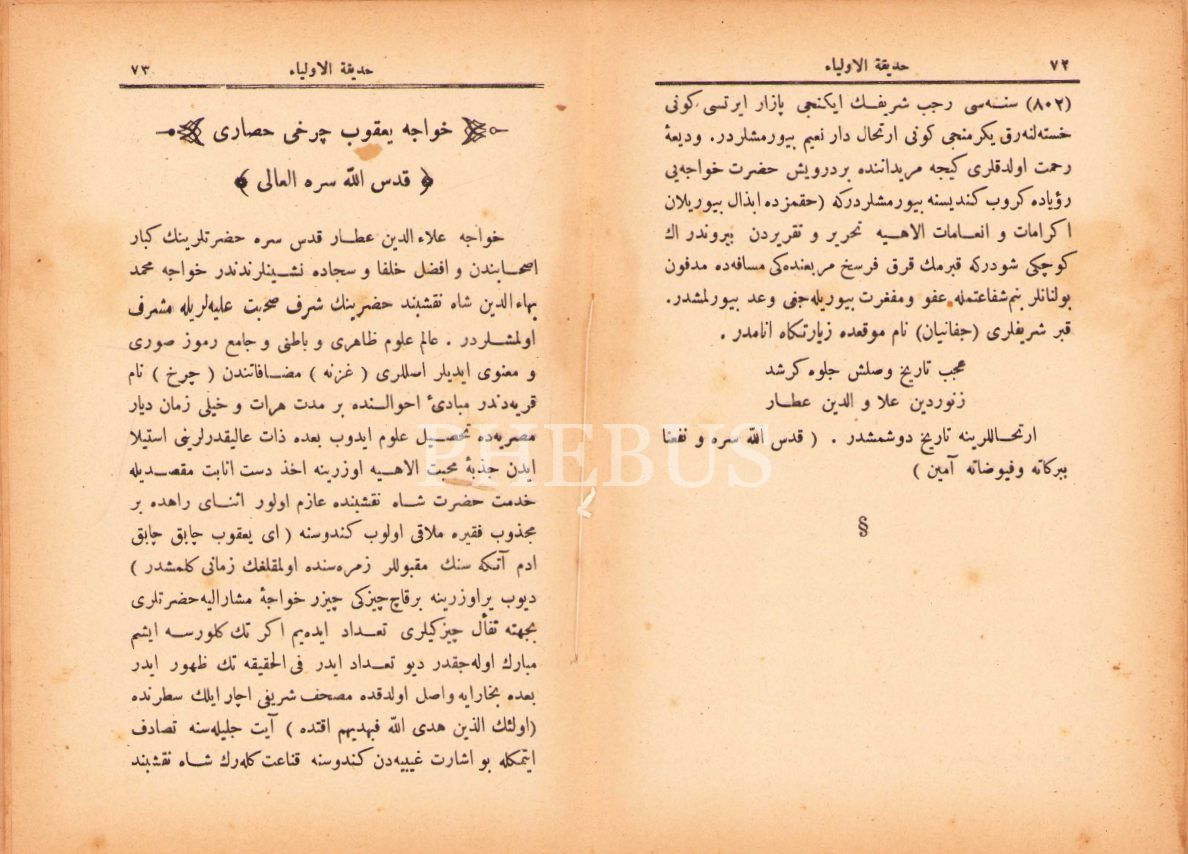 ٧٢
حديقة الاولياء
(٨٠٢) سنه‌سى رجب شريفك ايكنجى پازار ايرتسى كونى
خسته‌لنه‌رق يكرمنجى كونى ارتحال دار نعيم بيورمشلردر. وديعهٔ
رحمت اولدقلرى كيجه مريداننده بر درويش حضرت خواجه‌يى
رؤياده كروب كنديسنه بيورمشلردركه (حقمزده ابذال بيوريلان
اكرامات و انعامات الاهيه تحرير و تقريردن بيروندر اك
كوچكى شودركه قبرمك قرق فرسخ مربعنده‌كى مسافه‌ده مدفون
بولنانلر بنم شفاعتمله عفو ومغفرت بيوريله‌جغى وعد بيورلمشدر.
قبر شريفلرى (جفانيان) نام موقعده زيارتكاه انامدر .
عجب تاريخ وصلش جلوه كرشد
زنوردين علا و الدين عطار
ارتحاللرينه تاريخ دوشمشدر . ( قدس الله سره و نفعنا
ببركاته وفيوضاته آمين )
§
حديقة الاولياء
٧٣
خواجه يعقوب چرخى حصارى
﴿ قدس الله سره العالى ﴾
خواجه علاء الدين عطار قدس سره حضرتلرينك كبار
اصحابندن و افضل خلفا و سجاده نشينلرندندر خواجه محمد
بهاء الدين شاه نقشبند حضرينك شرف صحبت عليه‌لريله مشرف
اولمشلردر . عالم علوم ظاهرى و باطنى و جامع رموز صورى
و معنوى ايديلر اصللرى ( غزنه ) مضافاتندن ( چرخ ) نام
قريه‌دندر مبادئ احوالنده بر مدت هرات و خيلى زمان ديار
مصريه‌ده تحصيل علوم ايدوب بعده ذات عاليقدرلرينى استيلا
ايدن جذبهٔ محبت الاهيه اوزرينه اخذ دست انابت مقصديله
خدمت حضرت شاه نقشبنده عازم اولور اثناى راهده بر
مجذوب فقيره ملاقى اولوب كندوسنه ( اى يعقوب چابق چابق
ادم آتكه سنك مقبوللر زمره‌سنده اولمقلغك زمانى كلمشدر )
ديوب ير اوزرينه برقاچ چيزكى چيزر خواجهٔ مشاراليه حضرتلرى
بجهته تفأل چيزكيلرى تعداد ايده‌يم اكر تك كلورسه ايشم
مبارك اوله‌جقدر ديو تعداد ايدر فى الحقيقه تك ظهور ايدر
بعده بخارايه واصل اولدقده مصحف شريفى اچار ايلك سطرنده
(اولئك الذين هدى الله فبهديهم اقتده ) آيت جليله‌سنه تصادف
ايتمكله بو اشارت غيبيه‌دن كندوسنه قناعت كله‌رك شاه نقشبند
PHEBUS